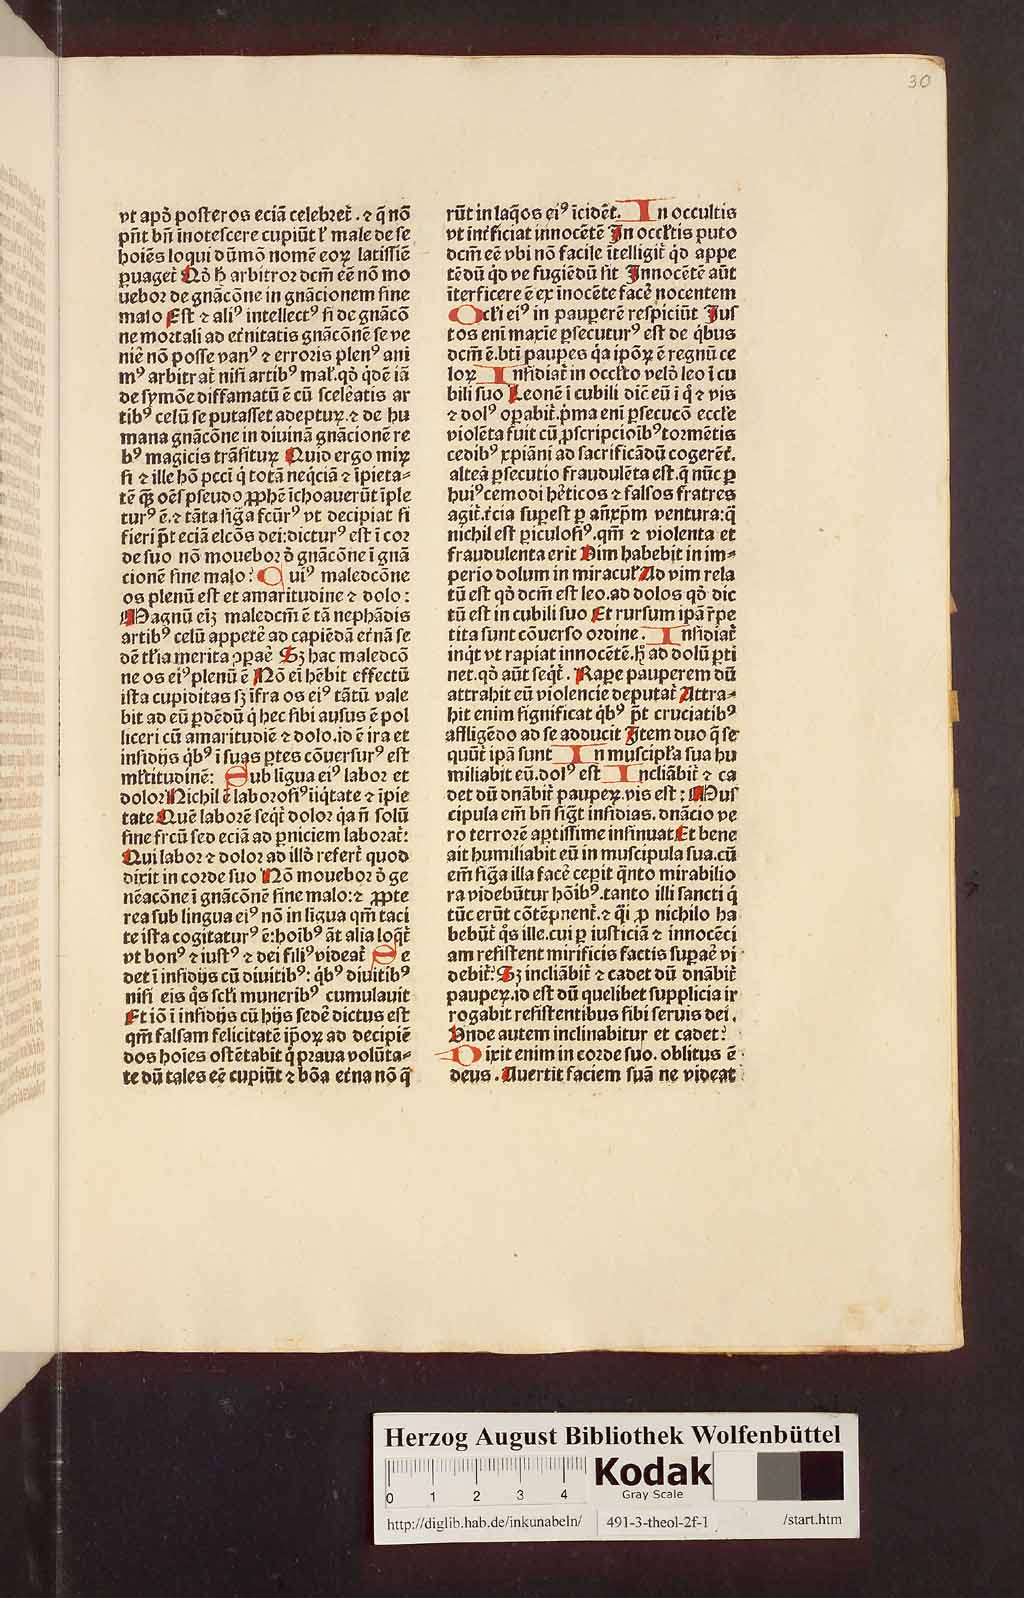 30
vt apd̉ posteros eciā celebret̉ . ⁊ q̄ nō
pn̄t bn̄ īnotescere cupiūt ł male de se
hoīes loqui dūmō nomē eoꝝ latissiē
ꝑuaget̉ Qd̉ ħ arbitror dcm̄ eē nō mo
uebor de gnācōne in gnācionem sine
malo Est ⁊ aliꝰ intellectꝰ si de gnācō
ne mortali ad et̉nitatis gnācōnē se ve
niē nō posse vanꝰ ⁊ erroris plenꝰ ani
mꝰ arbitrat̉ nisi artibꝰ mał. qd̉ qͥdē iā
de symōe diffamatū ē cū sceleatis ar
tibꝰ celū se putasset adepturꝝ. ⁊ de hu
mana gnācōne in diuinā gnācionē re
bꝰ magicis trāsiturꝝ Quid ergo mirꝝ
si ⁊ ille hō pcci qͥ totā neqͥciā ⁊ īpieta⸗
tē quā oēs pseudo ꝓphe īchoauerūt īple
turꝰ ē. ⁊ tāta signa fcūrꝰ vt decipiat si
fieri pōt eciā elcōs dei: dicturꝰ est ī cor
de suo nō mouebor d̉ gnācōne ī gnā
cionē sine malo: Cuiꝰ maledcōne
os plenū est et amaritudine ⁊ dolo :
Magnū eīꝫ maledcm̄ ē tā nephādis
artibꝰ celū appetē ad capiēdā et̉nā se
dē tłia merita ꝯpaē Sꝫ hac maledcō
ne os eiꝰ plenū ē Nō eī hēbit effectū
ista cupiditas sꝫ īfra os eiꝰ tātū vale
bit ad eū ꝑdēdū qͥ hec sibi ausus ē pol
liceri cū amaritudiē ⁊ dolo. id ē ira et
insidijs qͥbꝰ ī suas ꝑtes cōuersurꝰ est
młtitudinē: Sub ligua eiꝰ labor et
dolor Nichil ē laborosiꝰ īiqͥtate ⁊ īpie
tate Quē laborē seqt̉ dolor qͥa nō solū
sine frcū sed eciā ad ꝑniciem laborat̉:
Qui labor ⁊ dolor ad illd̉ refert̉ quod
dixit in corde suo Nō mouebor d̉ ge
nēacōne ī gnācōnē sine malo: ⁊ ꝓpte
rea sub lingua eiꝰ nō in ligua qm̄ taci
te ista cogitaturꝰ ē: hoībꝰ āt alia loqt̉
vt bonꝰ ⁊ iustꝰ ⁊ dei filiꝰ videat̉ Se
det ī insidijs cū diuitibꝰ: qͥbꝰ diuitibꝰ
nisi eis qͦs scłi muneribꝰ cumulauit
Et iō ī insidijs cū hijs sedē dictus est
qm̄ falsam felicitatē īpoꝝ ad decipiē
dos hoīes ostētabit qͥ praua volūta⸗
te dū tales eē cupiūt ⁊ bōa et̉na nō q̄
rūt in laq̄os eiꝰ īcidēt̉. In occultis
vt int̉ficiat innocētē In occłtis puto
dcm̄ eē vbi nō facile ītelligit̉ qͥd appe
tēdū qͥd ve fugiēdū sit Innocētē aūt
īterficere ē ex īnocēte facē nocentem
Ocłi eiꝰ in pauperē respiciūt Jus
tos eni maxie ꝑsecuturꝰ est de qͥbus
dcm̄ ē. bti paupes qͥa ipoꝝ ē regnū ce
loꝝ Insidiat̉ in occłto velud leo ī cu
bili suo Leonē ī cubili dic̄ eū ī qͦ ⁊ vis
⁊ dolꝰ oꝑabit̉. pͥma eni ꝑsecucō eccłe
violēta fuit cū ꝓscripcioībꝰ tormētis
cedibꝰ xpiāni ad sacrificādū cogerēt̉.
altea ꝑsecutio fraudulēta est. q̄ nūc ꝑ
huiꝰcemodi hēticos ⁊ falsos fratres
agit̉. t̉cia supest ꝑ an̄xpm̄ ventura: q̄
nichil est ꝑiculosiꝰ. qm̄ ⁊ violenta et
fraudulenta erit Vim habebit in im⸗
perio dolum in miracuł Ad vim rela
tū est qd̉ dcm̄ est leo. ad dolos qd̉ dic
tū est in cubili suo Et rursum ipā r̄pe
tita sunt cōuerso ordine . Insidiat̉
inqͥt vt rapiat innocētē. hͦ ad dolū ꝑti
net. qd̉ aūt seqt̉ . Rape pauperem dū
attrahit eū violencie deputat̉ Attra⸗
hit enim significat qͥbꝰ pōt cruciatibꝰ
affligēdo ad se adducit Item duo q̄ se
quūt̉ ipā sunt In muscipła sua hu
miliabit eū. dolꝰ est Incliābit̉ ⁊ ca
det dū dnābit̉ paupeꝝ. vis est : Mus
cipula em̄ bn̄ sigt̉ insidias. dnācio ve
ro terrorē aꝑtissime insinuat Et bene
ait humiliabit eū in muscipula sua. cū
em̄ siga illa facē ceꝑit qͣnto mirabilio
ra videbūtur hōibꝰ. tanto illi sancti qͥ
tūc erūt cōtēpnent̉. ⁊ qͣi ꝓ nichilo ha
bebūt̉ qͦs ille. cui ꝑ iusticiā ⁊ innocēci
am resistent mirificis factis suꝑaē vi
debit̉. Sꝫ incliābit̉ ⁊ cadet dū dnābit̉
paupeꝝ. id est dū quelibet supplicia ir
rogabit resistentibus sibi seruis dei .
Vnde autem inclinabitur et cadet:
Dixit enim in corde suo. oblitus ē
deus . Auertit faciem suā ne videat
Herzog August Bibliothek Wolfenbüttel
0 1 2 3 4
Kodak
Gray Scale
http://diglib.hab.de/inkunabeln/ 491-3-theol-2f-1 /start.htm